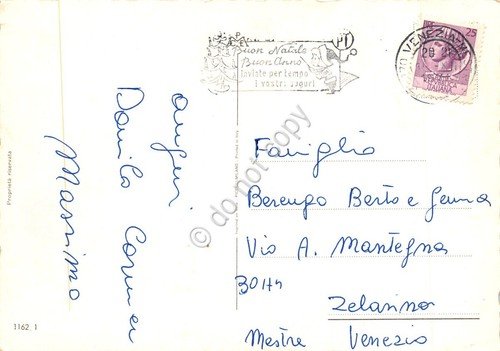 Buon Natale
Buon Anno
Inviate per tempo
i vostri auguri
PT
VENEZIA
25
ITALIANA
auguri
Danilo
Massimo
Famiglia
Berengo Berto e Gemma
Via A. Mantegna
30174
Zelarino
Mestre Venezia
Proprietà riservata
1162 I
© do not copy